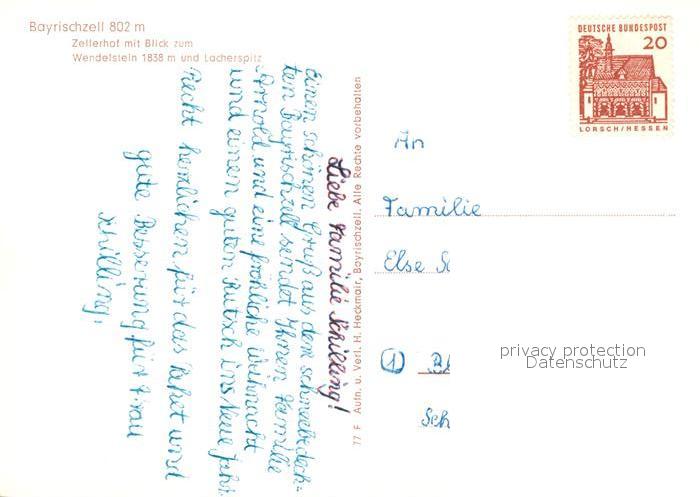 Bayrischzell 802 m
Zellerhof mit Blick zum
Wendelstein 1838 m und Lacherspitz
DEUTSCHE BUNDESPOST
20
LORSCH/HESSEN
Liebe Familie Schilling!
Einen schönen Gruß aus dem schneebedeck-
ten Bayrischzell sendet Ihnen Familie
Arnold und eine fröhliche Weihnacht
und einen guten Rutsch ins Neue Jahr.
Recht herzlichen für das Paket und
gute Besserung für Frau
Schilling.
77 F Aufn. u. Verl. H. Heckmair, Bayrischzell. Alle Rechte vorbehalten
An
Familie
Else Sc
Sch
privacy protection
Datenschutz